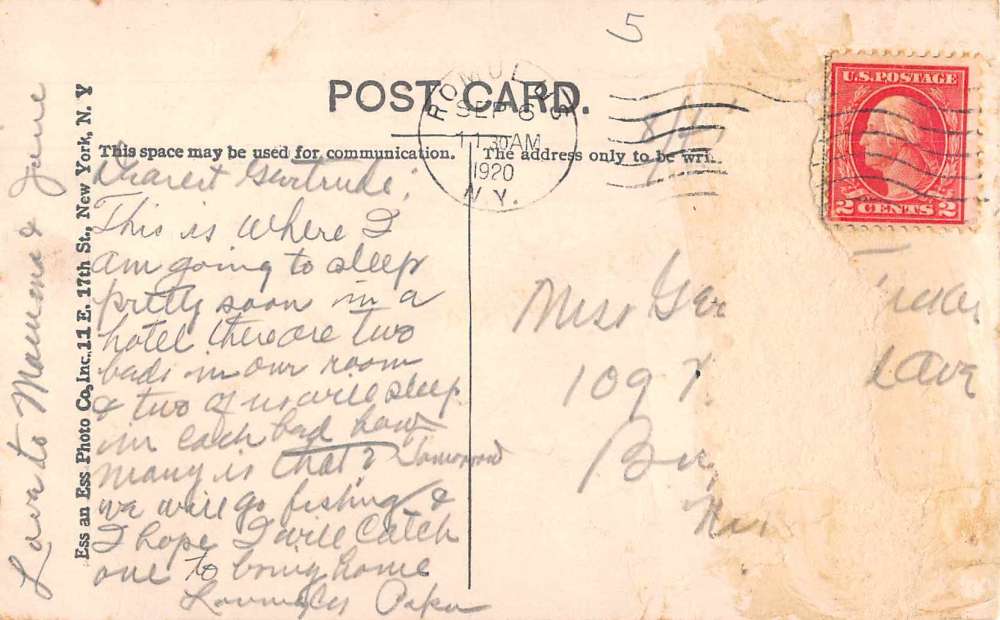 5
POST CARD.
ROMULUS
SEP 8
11 30 AM
1920
N.Y.
U.S. POSTAGE
2 CENTS 2
This space may be used for communication.
The address only to be wri
Dearest Gertrude;
This is where I
am going to sleep
pretty soon in a
hotel there are two
beds in our room
& two of us will sleep
in each bed how
many is that? Tomorrow
we will go fishing &
I hope I will catch
one to bring home
Lovingly Papa
Love to Mamma & June
Ess an Ess Photo Co., Inc. 11 E. 17th St., New York, N. Y
Miss Ger
109
Ave
Bu